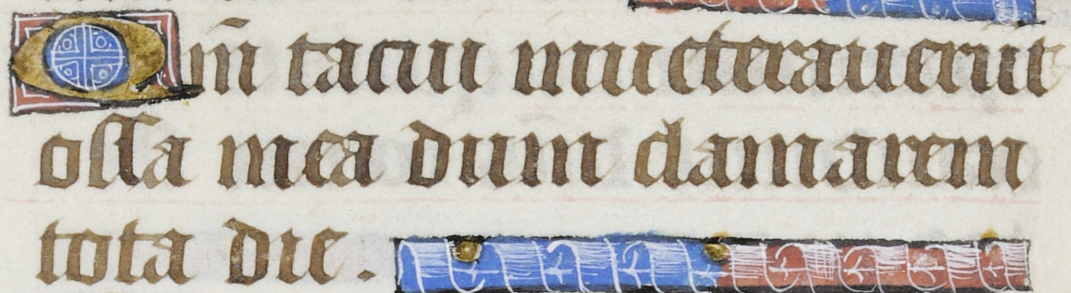 Qm̄ tacui inueterauerūt
ossa mea dum clamarem
tota die.